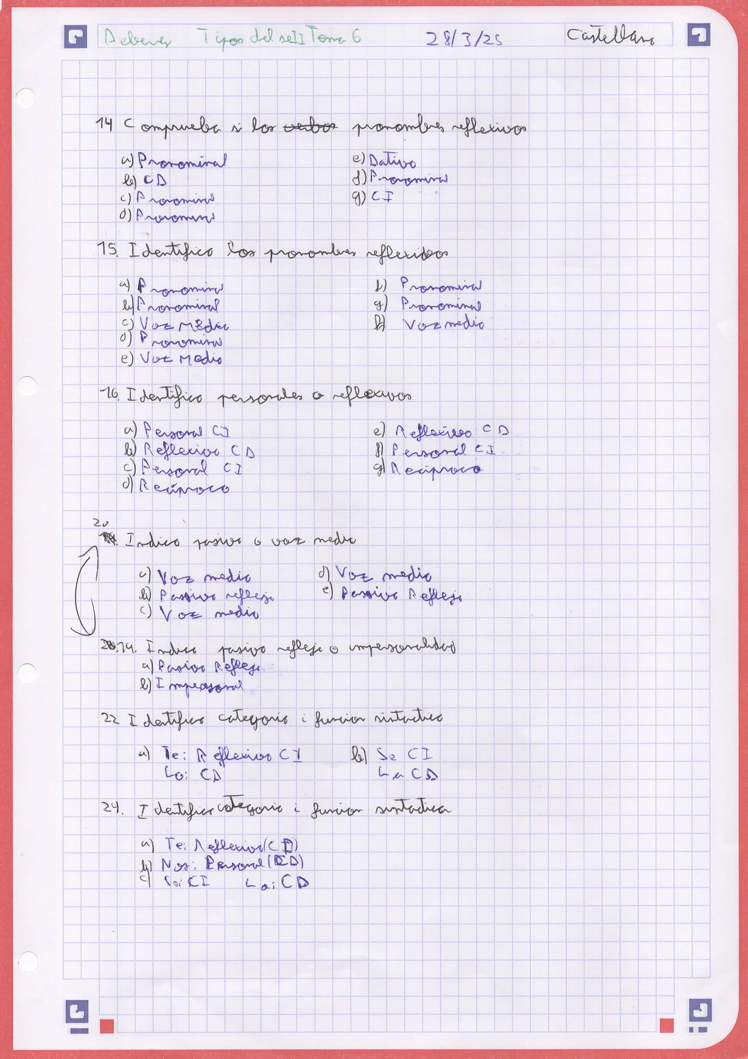 Deberes Tipos del se II Tema 6 28/3/25 Castellano
14 Comprueba si los verbos pronombres reflexivos
a) Pronominal
b) CD
c) Pronominal
d) Pronominal
e) Dativo
f) Pronominal
g) CI
15. Identifica los pronombres reflexivos
a) Pronominal
b) Pronominal
c) Voz Media
d) Pronominal
e) Voz Media
f) Pronominal
g) Pronominal
h) Voz media
16. Identifica personales o reflexivos
a) Personal CI
b) Reflexivo CD
c) Personal CI
d) Recíproco
e) Reflexivo CD
f) Personal CI
g) Recíproco
20
Indica pasiva o voz media
a) Voz media
b) Pasiva refleja
c) Voz media
d) Voz media
e) Pasiva Refleja
19. Indica pasiva refleja o impersonalidad
a) Pasiva Refleja
b) Impersonal
22 Identifica categoria i funcion sintactica
a) Te: Reflexivo CI
Lo: CD
b) Se CI
La CD
24. Identifica categoria i funcion sintactica
a) Te: Reflexivo (CD)
b) Nos: Personal (CD)
c) Se: CI La: CD